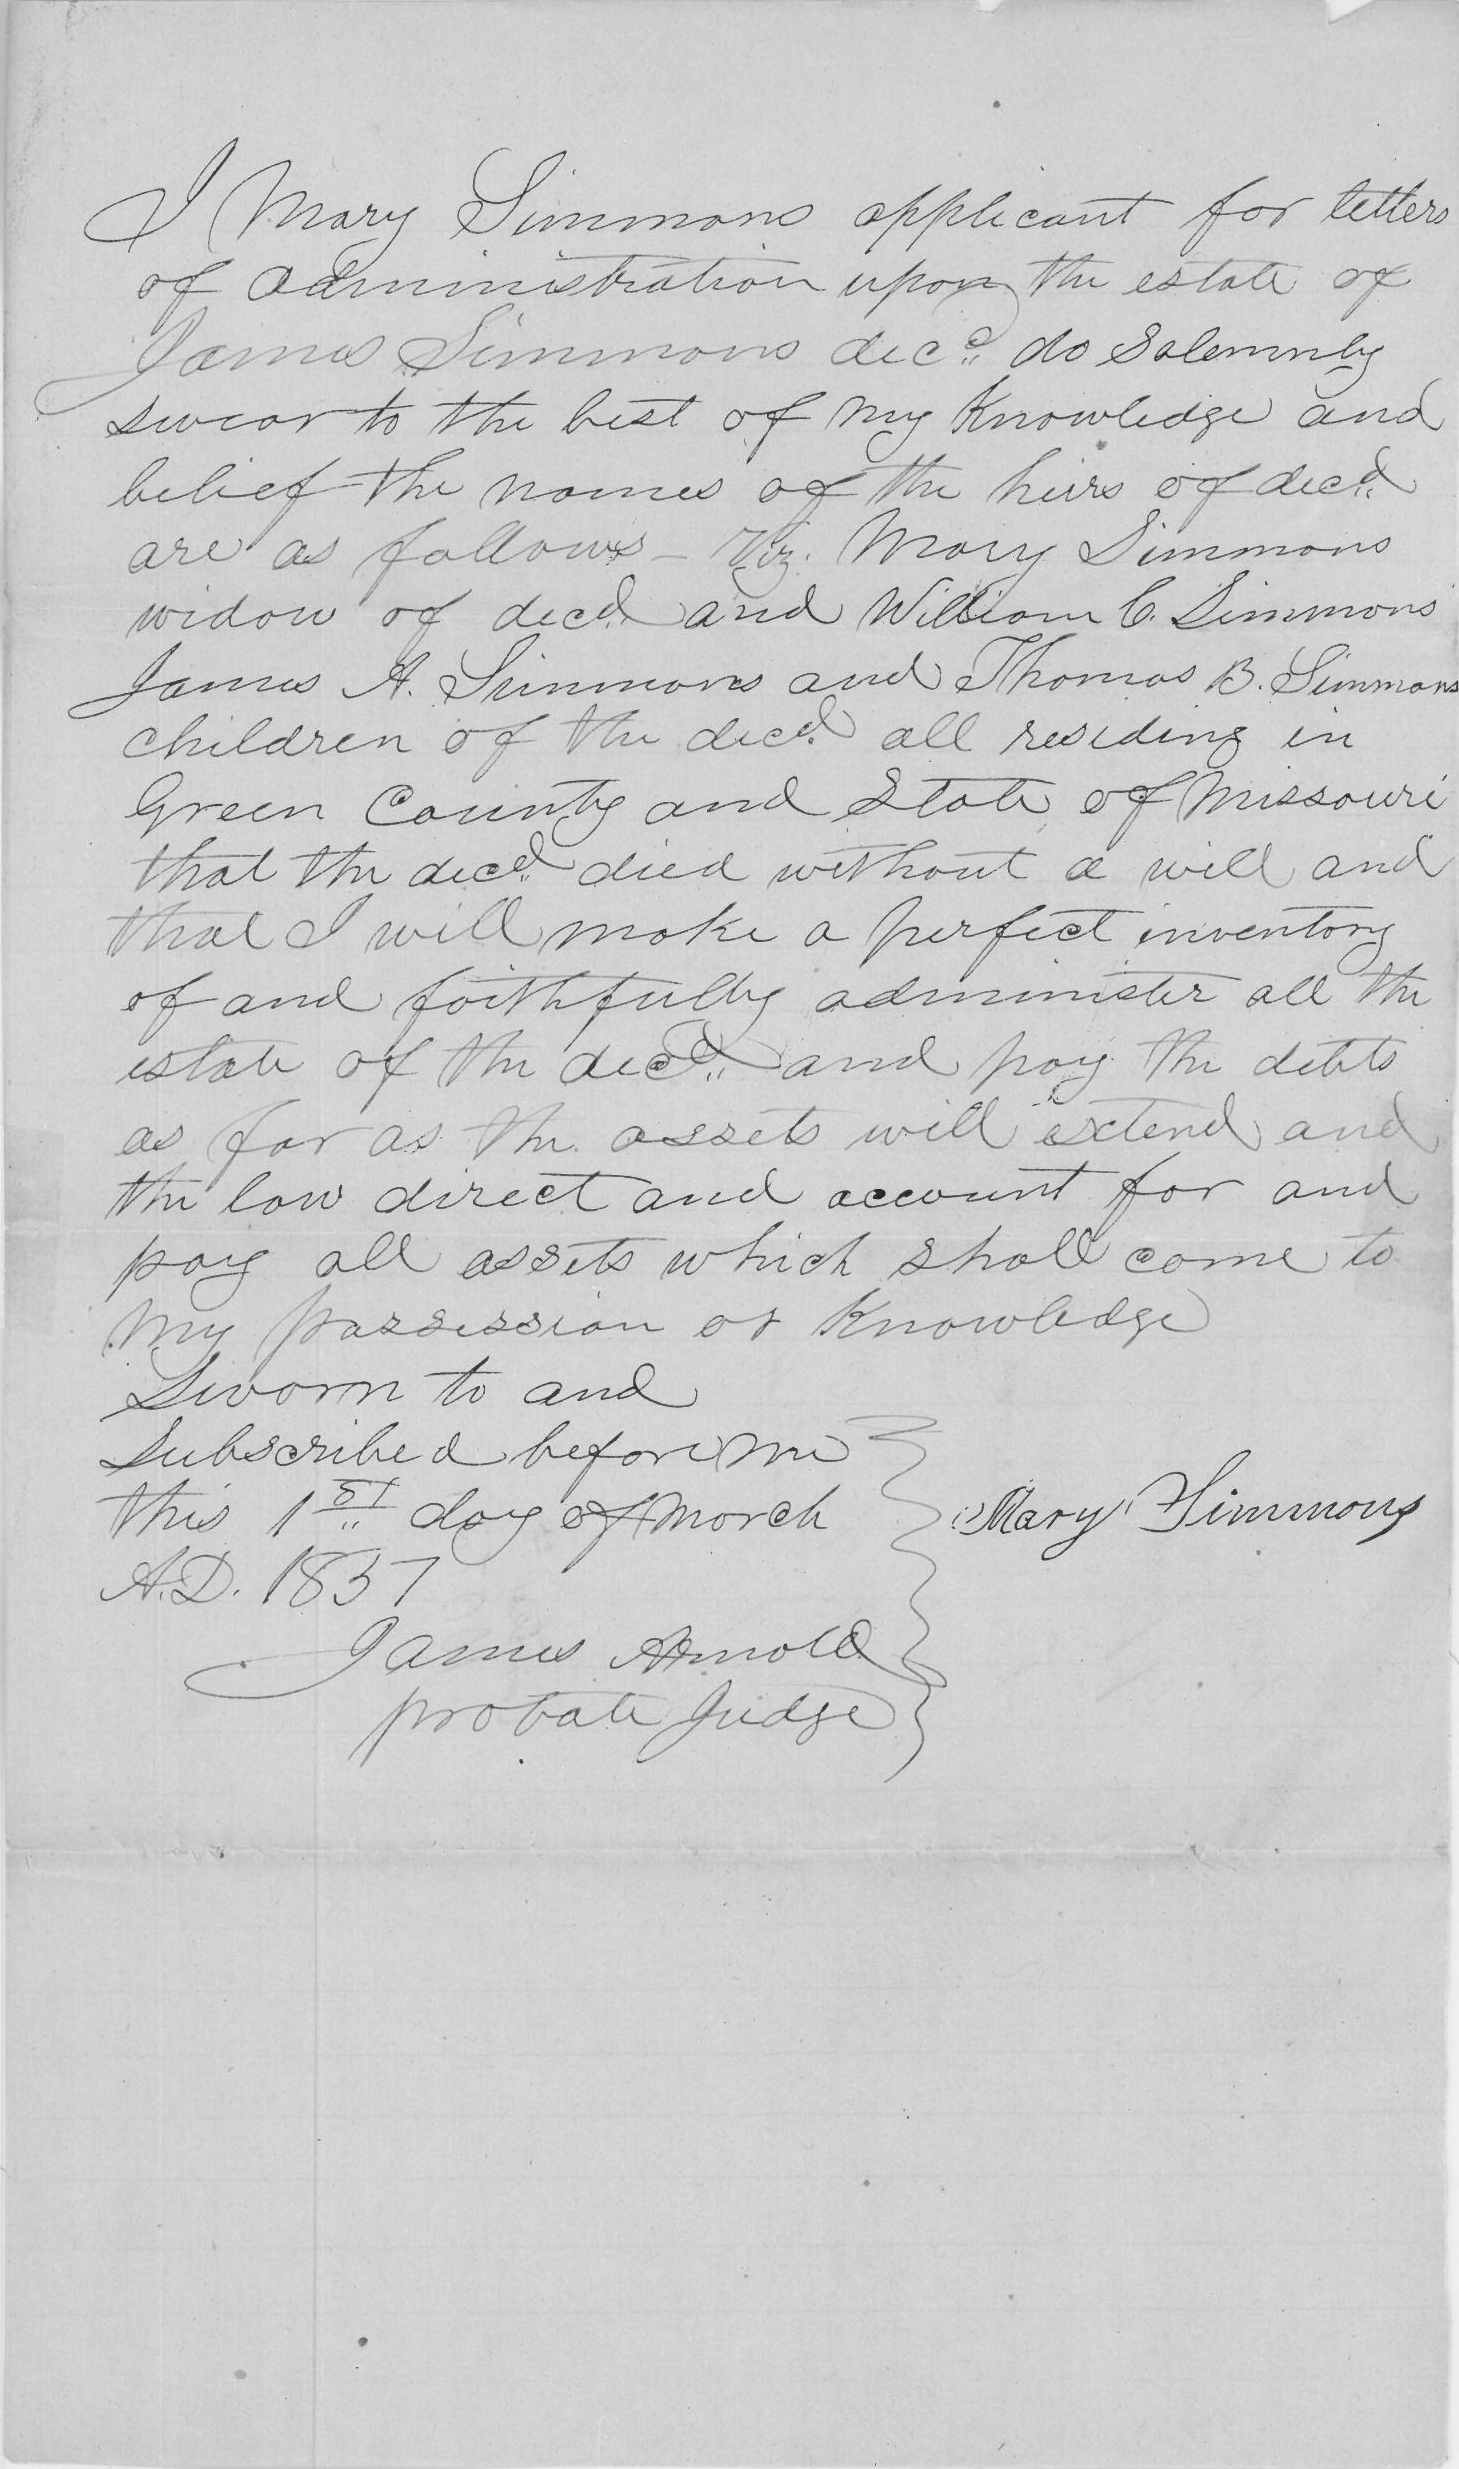 I Mary Simmons applicant for letters
of administration upon the estate of
James Simmons decd. do Solemnly
swear to the best of my Knowledge and
belief the names of the heirs of decd.
are as follows - Viz. Mary Simmons
widow of decd. and William C. Simmons
James A. Simmons and Thomas B. Simmons
children of the decd. all residing in
Green County and State of Missouri
that the decd. died without a will and
that I will make a perfect inventory
of and faithfully administer all the
estate of the decd. and pay the debts
as far as the assets will extend and
the law direct and account for and
pay all assets which shall come to
my possession or Knowledge
Sworn to and
Subscribed before me
this 1st day of March
Mary Simmons
A.D. 1857
James Arnold
probate Judge